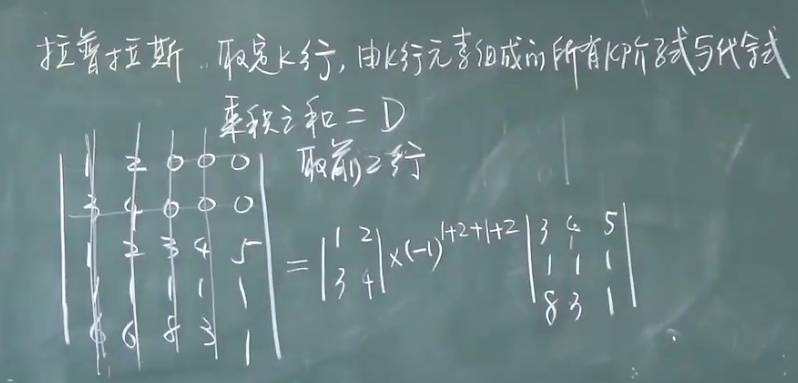 拉普拉斯.. 取定K行,由K行元素组成的所有K阶子式与代余式
乘积之和=D
取前2行
1 2 0 0 0
3 4 0 0 0
1 2 3 4 5
1 1 1 1 1
6 6 8 3 1
= | 1 2 | ×(-1)^{1+2+1+2} | 3 4 5 |
| 3 4 | | 1 1 1 |
| 8 3 1 |